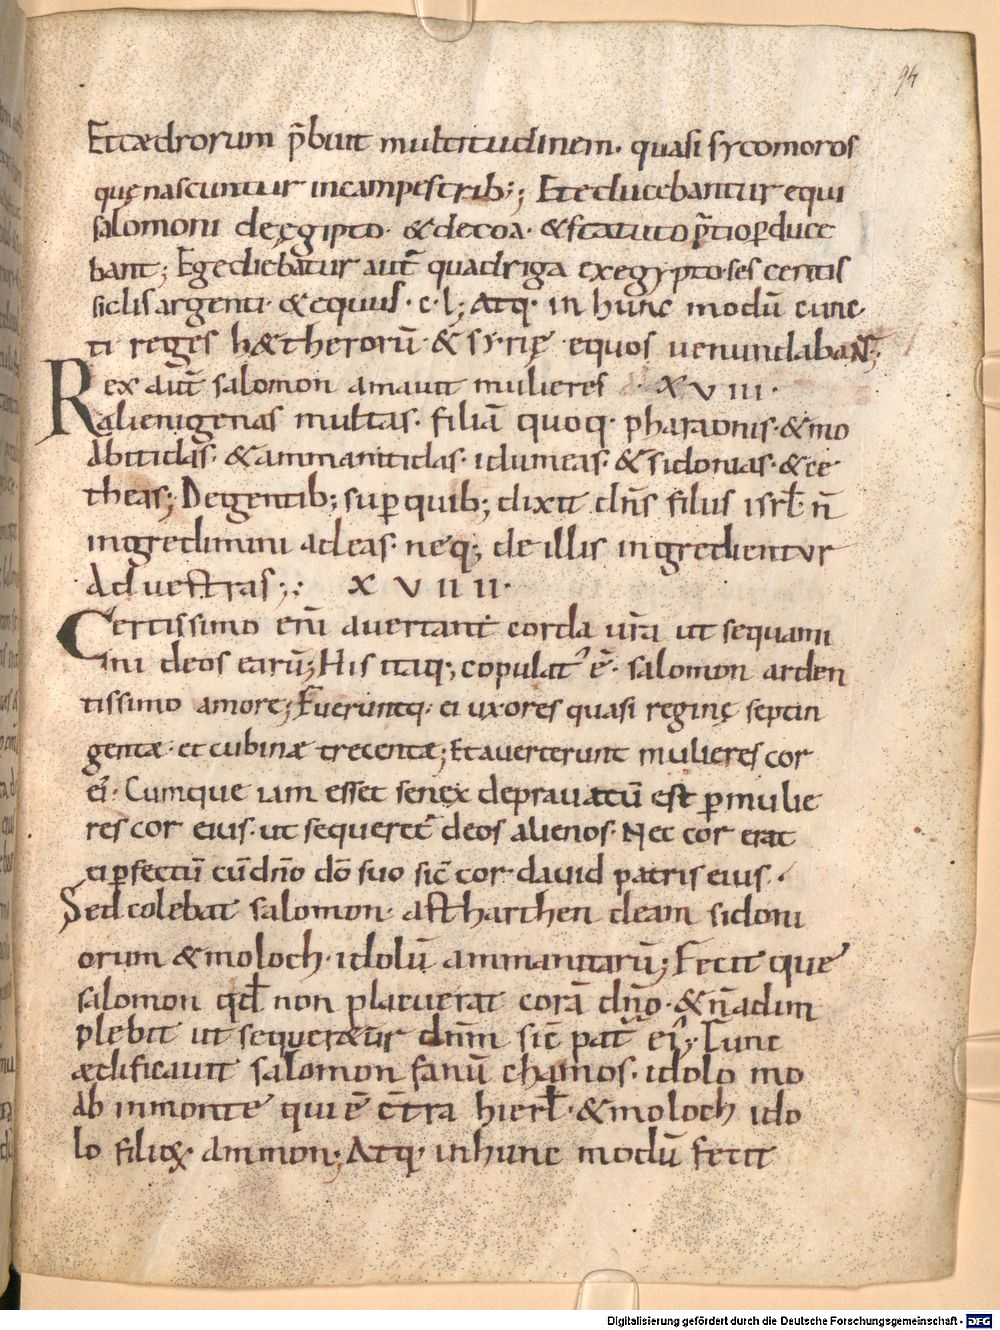 94
Et cædrorum p̄buit multitudinem· quasi sycomoros
quę nascuntur incampestrib;; Et educebantur equi
salomoni de ęgipto· & de coa· & statuto p̄tio ꝑduce
bant; Egrediebatur aut̄ quadriga ex egypto· sescentis
siclis argenti· & equus· c·l; Atq· in hunc modū cunc
ti reges hætherorū· & syrię ·equos uenundabant;
Rex aut̄ salomon amauit mulieres · XVIII·
alienigenas multas· filiā quoq· pharaonis· & mo
abitidas· & ammanitidas· idumeas· & sidonias· & ce
theas; De gentib; super quib; dixit dn̄s filiis isrł· n̄
ingredimini ad eas· neq; de illis ingredientur
ad uestras;· XVIIII·
Certissimo eni̅ auertant corda ur̄a ut sequami
ini deos earū; His itaq; copulat᾿ ē· salomon arden
tissimo amore; Fueruntq· ei uxores quasi reginę septin
gentæ· et cubinæ trecentæ; Et auerterunt mulieres cor
ei᾿· Cumque iam esset senex deprauatū est ꝑ mulie
res cor eius· ut sequeret᾿ deos alienos· Nec cor erat
ei ꝑfectū cū dn̄o dō suo sic̄ cor dauid patris eius·
Sed colebat salomon· astharthen deam sidoni
orum & moloch· idolū ammanitarū; Fecit que
salomon qđ non placuerat corā dn̄o· & n̄ adim
plebit ut sequeræt᾿ur dn̄m sic̄ pat̄ ei᾿; Tunc
ædificauit salomon fanū chamos· idolo mo
ab in monte qui ē c̄tra hierł· & moloch ido
lo filioꝝ· ammon; Atq· in hunc modū fecit
Digitalisierung gefördert durch die Deutsche Forschungsgemeinschaft - DFG